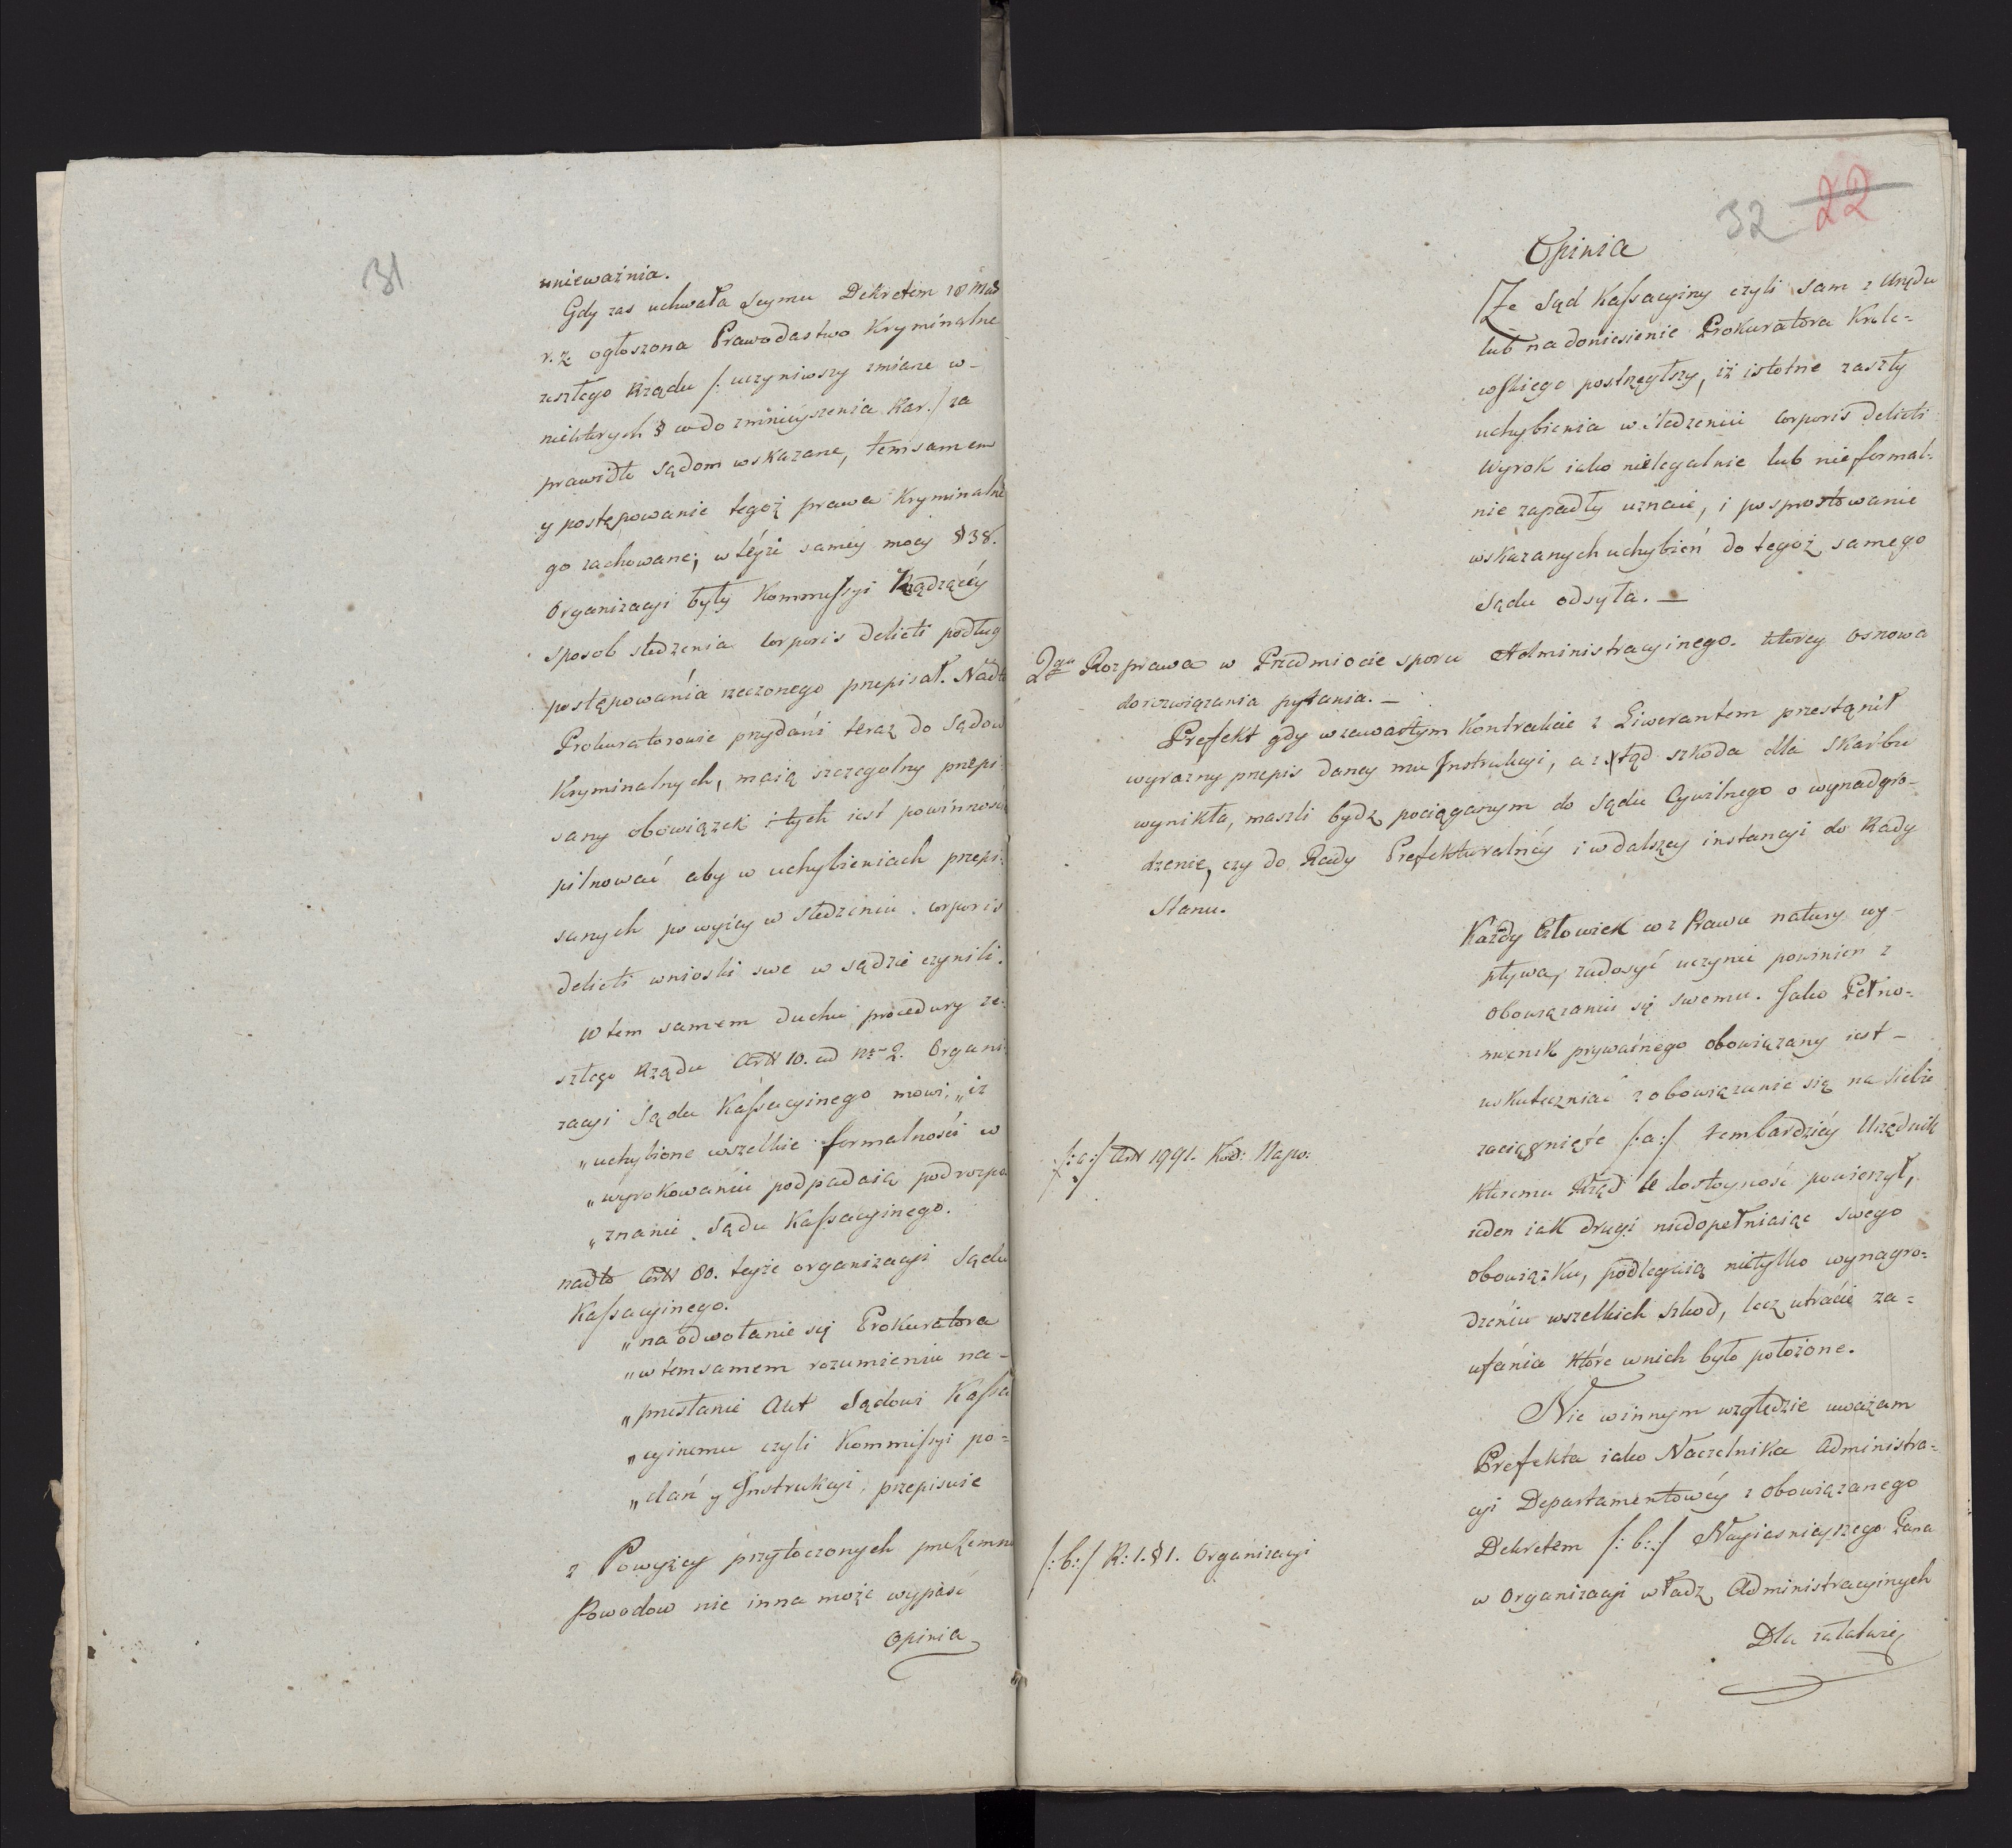 31
unieważnia.
Gdy zas uchwała Seymu Dekretem 18 Mar
r. z. ogłoszona Prawodastwo Kryminalne
zeszłego Rządu /: uczyniwszy zmiane w –
niektorych § co do zmnieyszenia Kar :/ za
prawidła Sądom wskazane, temsamem
y postępowanie tegoż prawa Kryminalne
go zachowane; w téyże saméy mocy § 38.
Organizacyi były Kommissyi Rządzącéy
sposob sledzenia Corporis delicti podług
postępowania rzeczonego przepisał. Nadto
Prokuratorowie przydani teraz do Sądow
Kryminalnych, maią szczegolny przepi
sany obowiązek i tych iest powinnoscią
pilnować aby w uchybieniach przepi:
sanych powyżey w sledzeniu corporis
delicti wnioski swe w Sądzie czynili.
W tem samem duchu procedury ze:
szłego Rządu Artt 10. ad Nr 2. Organi:
zacyi Sądu Kassacyinego mowi, „iz
„uchybione wszelkie formalności w
„wyrokowaniu podpadaią pod rozpo
„znanie Sądu Kassacyinego.
nadto Artt 80. teyże organizacyi Sądu
Kassacyinego.
„na odwołanie się Prokuratora
„w temsamem rozumieniu na –
„przesłanie Akt Sądowi Kassa
„cyinemu czyli Kommissyi po =
„dań y Instrukcyi, przepisuie
z Powyżey przytoczonych przezemnie
Powodow nie inna może wypasć
Opinia
32 22
Opinia
Ze Sąd Kassacyiny czyli sam z Urzędu
lub na doniesienie Prokuratora Krole =
wskiego postrzegłszy, iż istotne zaszły
uchybienia w śledzeniu Corporis delicti
Wyrok iako nielegalnie lub nieformal:
nie zapadły uznaie, i po sprostowanie
wskazanych uchybień do tegoż samego
Sądu odsyła. —
2gie Rozprawa w Przedmiocie sporu Administracyinego. ktorey osnowa
do rozwiązania pytania. —
Prefekt gdy w zawartym Kontrakcie z Liwerantem przestąpił
wyrazny przepis daney mu Instrukcyi, a ztąd szkoda dla Skarbu
wynikła, maszli bydz pociąganym do Sądu Cywilnego o wynadgro-
dzenie, czy do Rady Prefekturalnéy i w dalszey instancyi do Rady
Stanu.
Każdy Człowiek co z Prawa natury wy –
pływa, zadosyć uczynić powinien z
obowiązaniu się swemu. Jako Pełno =
mocnik prywatnego obowiązany iest –
uskuteczniać zobowiązanie się na siebie
zaciągnięte /:a:/ tembardziéy Urzędnik
ktoremu Rząd te dostoyność powierzył,
ieden iak drugi niedopełniaiąc swego
obowiązku, podlegaią nietylko wynagro=
dzeniu wszelkich szkod, lecz utracie za =
ufania które wnich było położone.
/:a:/ Artt 1991. Kod: Napo:
Nie winnym względzie uważam
Prefekta iako Naczelnika Administra=
cyi Departamentowéy z obowiązanego
Dekretem /:b:/ Nayiasnieyszego Pana
w Organizacyi władz Administracyinych
/:b:/ R: 1. § 1. Organizacyi
Dla załatwie